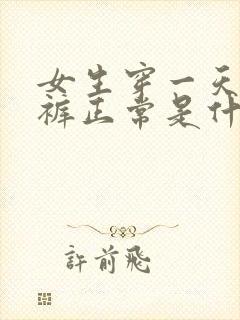 女生穿一天
裤正常是什
許前飛